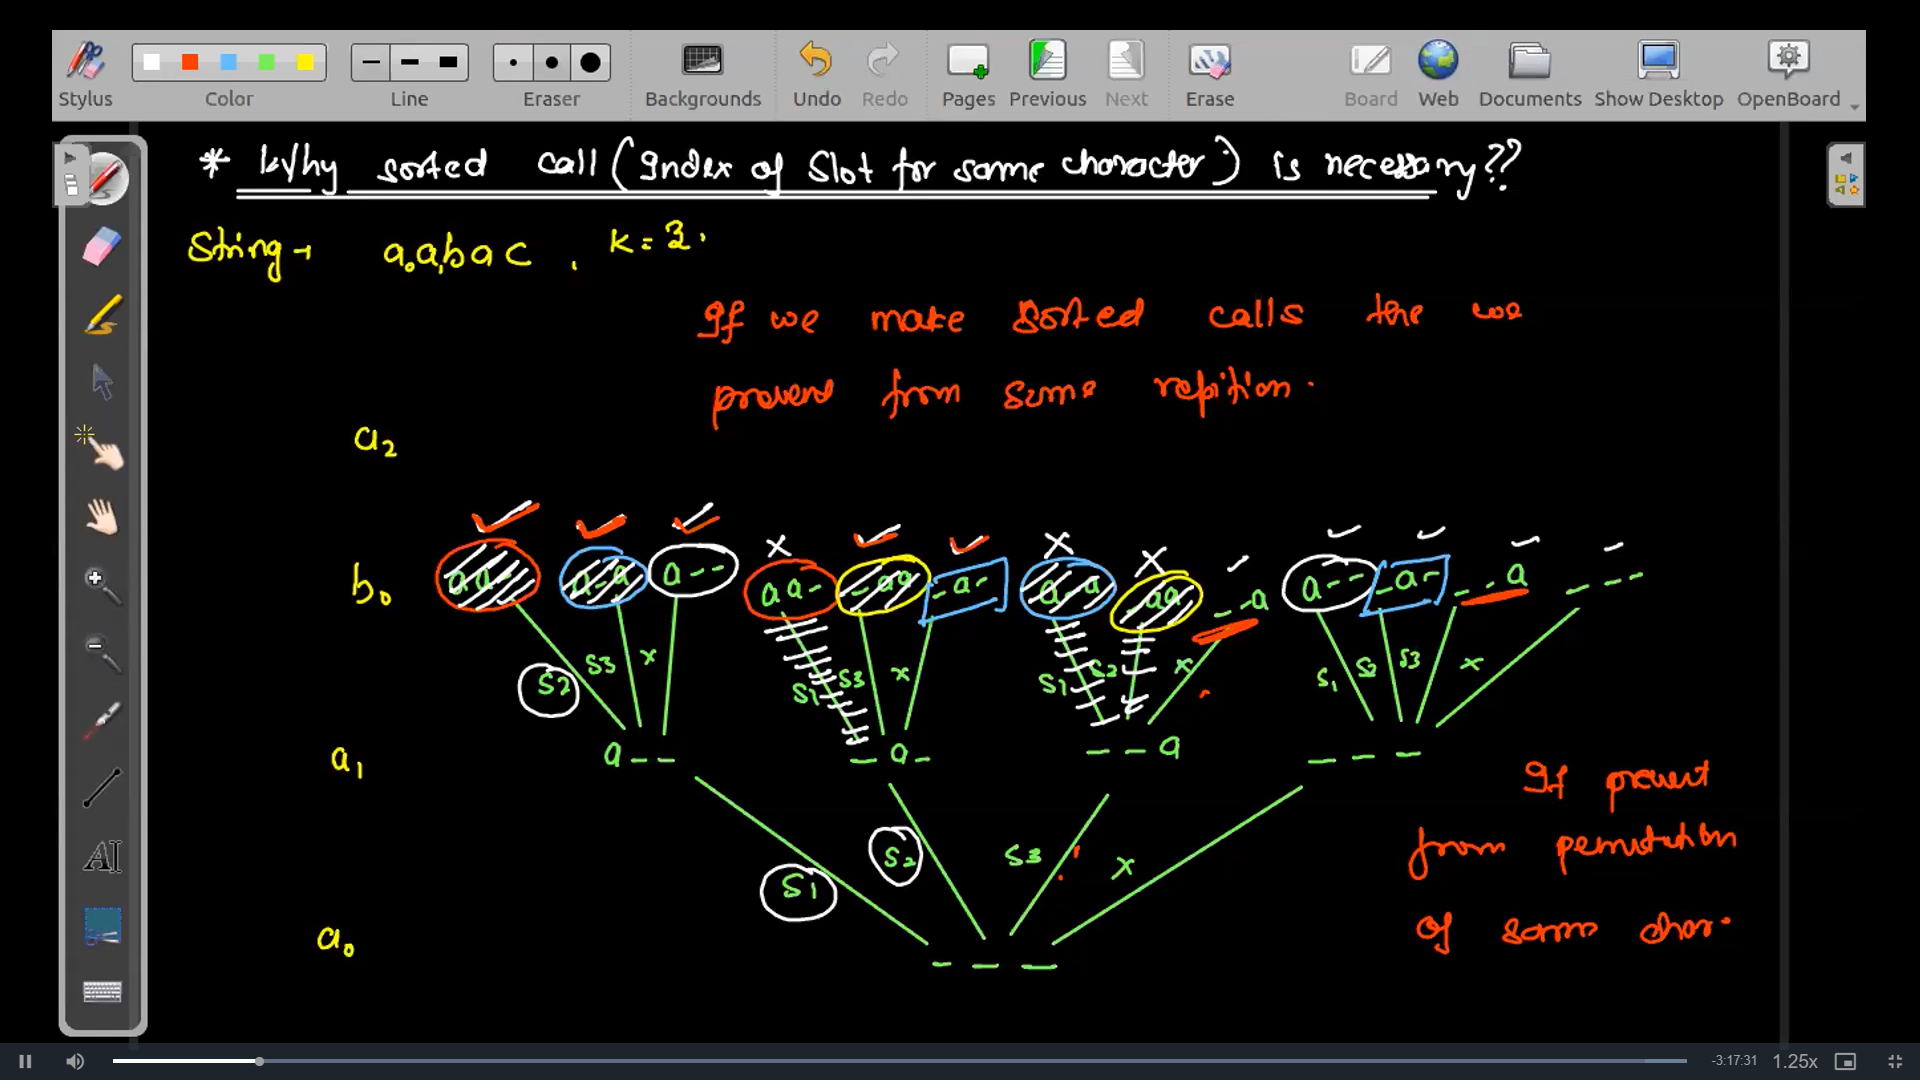 Stylus Color Line Eraser Backgrounds Undo Redo Pages Previous Next Erase Board Web Documents Show Desktop OpenBoard
* Why sorted call (Index of Slot for same character) is necessary??
String → a₀a₁bac , K = 3.
If we make sorted calls the we
prevent from same repition.
a₂
b₀ aa- a-a a-- aa- -aa -a- a-a -aa --a a-- -a- --a ---
S2 S3 x S1 S3 x S1 S2 x S1 S2 S3 x
a₁ a-- -a- --a ---
If prevent
from permutation
of same char.
S1 S2 S3 x
a₀ ---
-3:17:31 1.25x